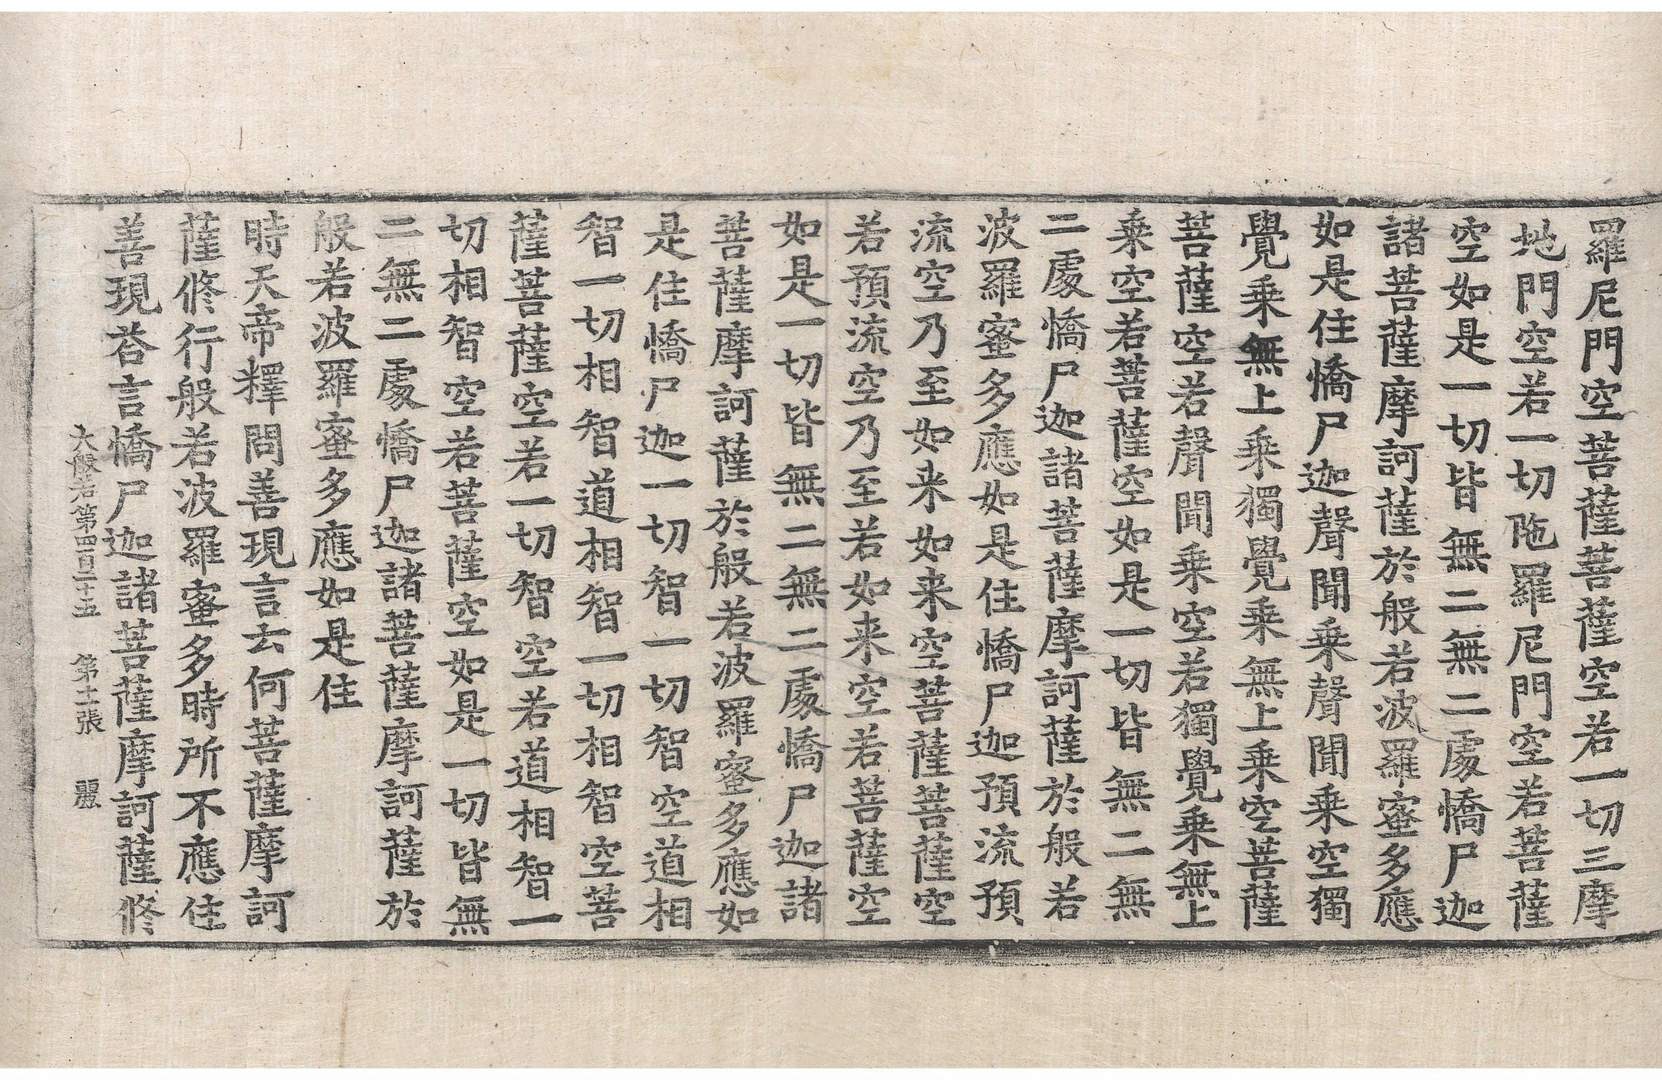 羅尼門空菩薩菩薩空若一切三摩
地門空若一切陁羅尼門空若菩薩
空如是一切皆無二無二處憍尸迦
諸菩薩摩訶薩於般若波羅蜜多應
如是住憍尸迦聲聞乗聲聞乗空獨
覺乗無上乗獨覺乗無上乗空菩薩
菩薩空若聲聞乗空若獨覺乗無上
乗空若菩薩空如是一切皆無二無
二處憍尸迦諸菩薩摩訶薩於般若
波羅蜜多應如是住憍尸迦預流預
流空乃至如来如来空菩薩菩薩空
若預流空乃至若如来空若菩薩空
如是一切皆無二無二處憍尸迦諸
菩薩摩訶薩於般若波羅蜜多應如
是住憍尸迦一切智一切智空道相
智一切相智道相智一切相智空菩
薩菩薩空若一切智空若道相智一
切相智空若菩薩空如是一切皆無
二無二處憍尸迦諸菩薩摩訶薩於
般若波羅蜜多應如是住
時天帝釋問善現言云何菩薩摩訶
薩修行般若波羅蜜多時所不應住
善現荅言憍尸迦諸菩薩摩訶薩修
大般若第四百二十五 第十二張 麗